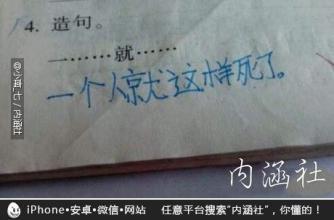 4. 造句。
一……就……
一个人就这样死了。
/内涵社
内涵社
iPhone•安卓•微信•网站 任意平台搜索“内涵社”，你懂的！